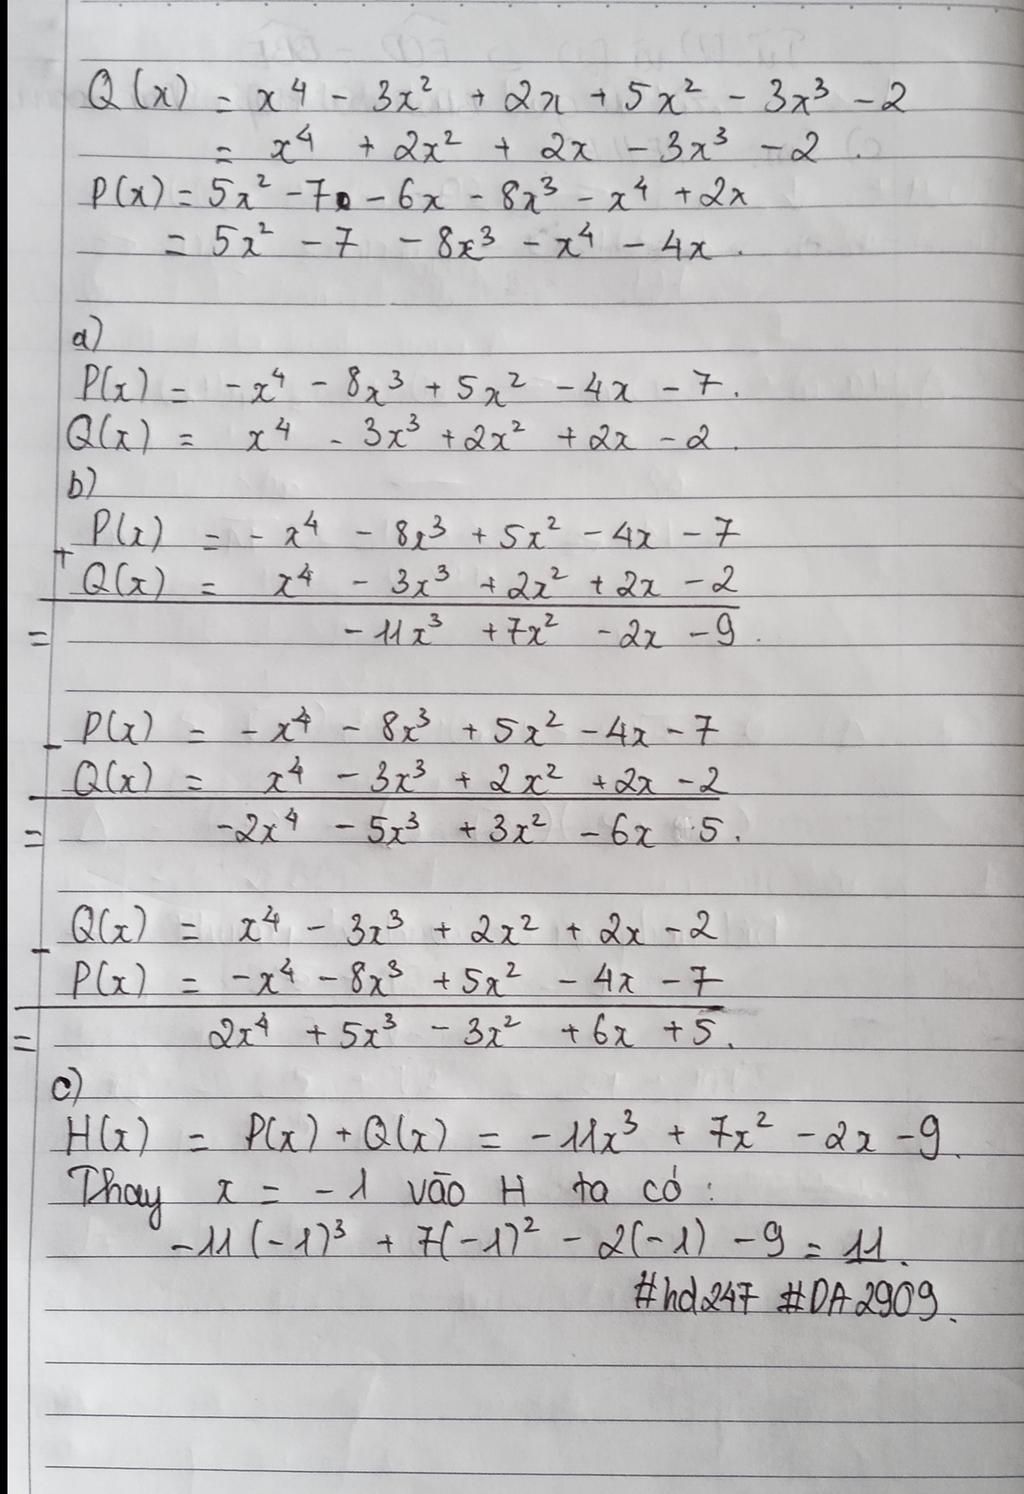 Q(x) = x⁴ - 3x² + 2x + 5x² - 3x³ - 2
= x⁴ + 2x² + 2x - 3x³ - 2.
P(x) = 5x² - 7 - 6x - 8x³ - x⁴ + 2x
= 5x² - 7 - 8x³ - x⁴ - 4x.
a)
P(x) = -x⁴ - 8x³ + 5x² - 4x - 7.
Q(x) = x⁴ - 3x³ + 2x² + 2x - 2.
b)
P(x) = - x⁴ - 8x³ + 5x² - 4x - 7
+
Q(x) = x⁴ - 3x³ + 2x² + 2x - 2
= -11x³ + 7x² - 2x - 9.
P(x) = - x⁴ - 8x³ + 5x² - 4x - 7
-
Q(x) = x⁴ - 3x³ + 2x² + 2x - 2
= -2x⁴ - 5x³ + 3x² - 6x - 5.
Q(x) = x⁴ - 3x³ + 2x² + 2x - 2
-
P(x) = -x⁴ - 8x³ + 5x² - 4x - 7
= 2x⁴ + 5x³ - 3x² + 6x + 5.
c)
H(x) = P(x) + Q(x) = -11x³ + 7x² - 2x - 9.
Thay x = -1 vào H ta có:
-11(-1)³ + 7(-1)² - 2(-1) - 9 = 11.
#hd247 #DA2909.